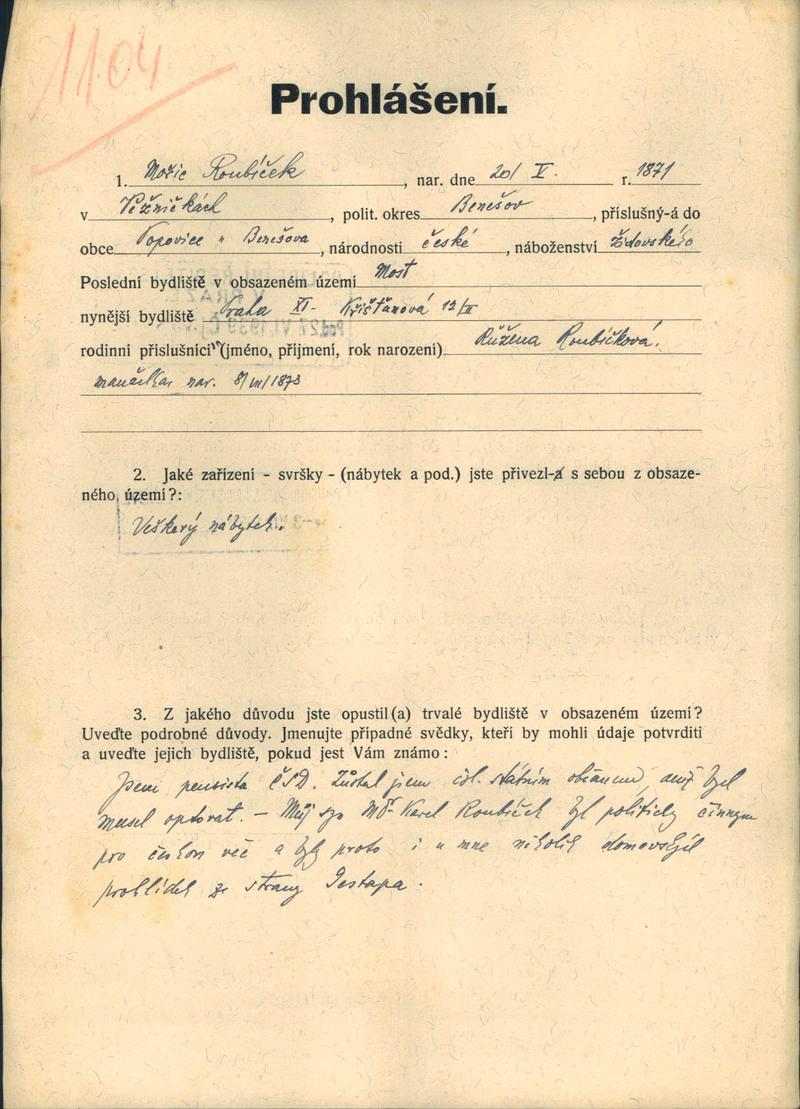 1104
Prohlášení.
1. Mořic Roubíček, nar. dne 20/ V. r. 1871
v Věžničkách, polit. okres Benešov, příslušný-á do
obce Popovice u Benešova, národnosti české, náboženství židovského
Poslední bydliště v obsazeném území Most
nynější bydliště Praha XI. Křišťanová 12/II
rodinní příslušníci (jméno, příjmení, rok narození) Růžena Roubíčková,
manželka, nar. 8/VIII/1873
2. Jaké zařízení - svršky - (nábytek a pod.) jste přivezl-a s sebou z obsaze-
ného území?:
Veškerý nábytek.
3. Z jakého důvodu jste opustil(a) trvalé bydliště v obsazeném území?
Uveďte podrobné důvody. Jmenujte případné svědky, kteří by mohli údaje potvrditi
a uveďte jejich bydliště, pokud jest Vám známo:
Jsem pensista ČSD. Zůstal jsem čsl. státním občanem, aniž bych
musel optovat. - Můj syn Karel Roubíček byl politicky činným
pro českou věc a byly proto i u mne několik domovních
prohlídek ze strany Gestapa.